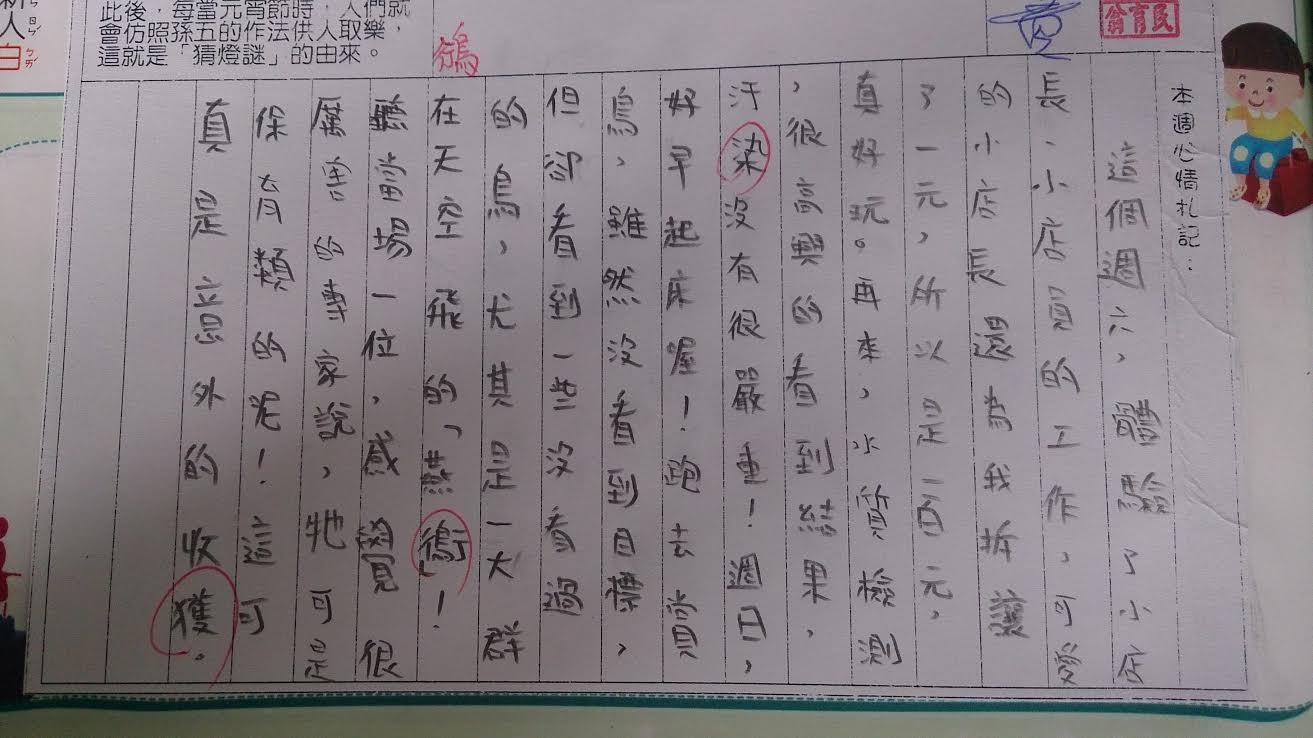 此後，每當元宵節時，人們就
會仿照孫五的作法供人取樂，
這就是「猜燈謎」的由來。
新人
ㄖㄣˊ
白
ㄅㄞˊ
翁育民
本週心情札記：
這個週六，體驗了小店
長、小店員的工作，可愛
的小店長還為我拆護
了一元，所以是一百元，
真好玩。再來，水質檢測
，很高興的看到結果，
汙染沒有很嚴重！週日，
好早起床喔！跑去賞
鳥，雖然沒看到目標，
但卻看到一些沒看過
的鳥，尤其是一大群
在天空飛的「燕鴴」！
聽當場一位，感覺很
厲害的專家說，牠可是
保育類的呢！這可
真是意外的收獲。